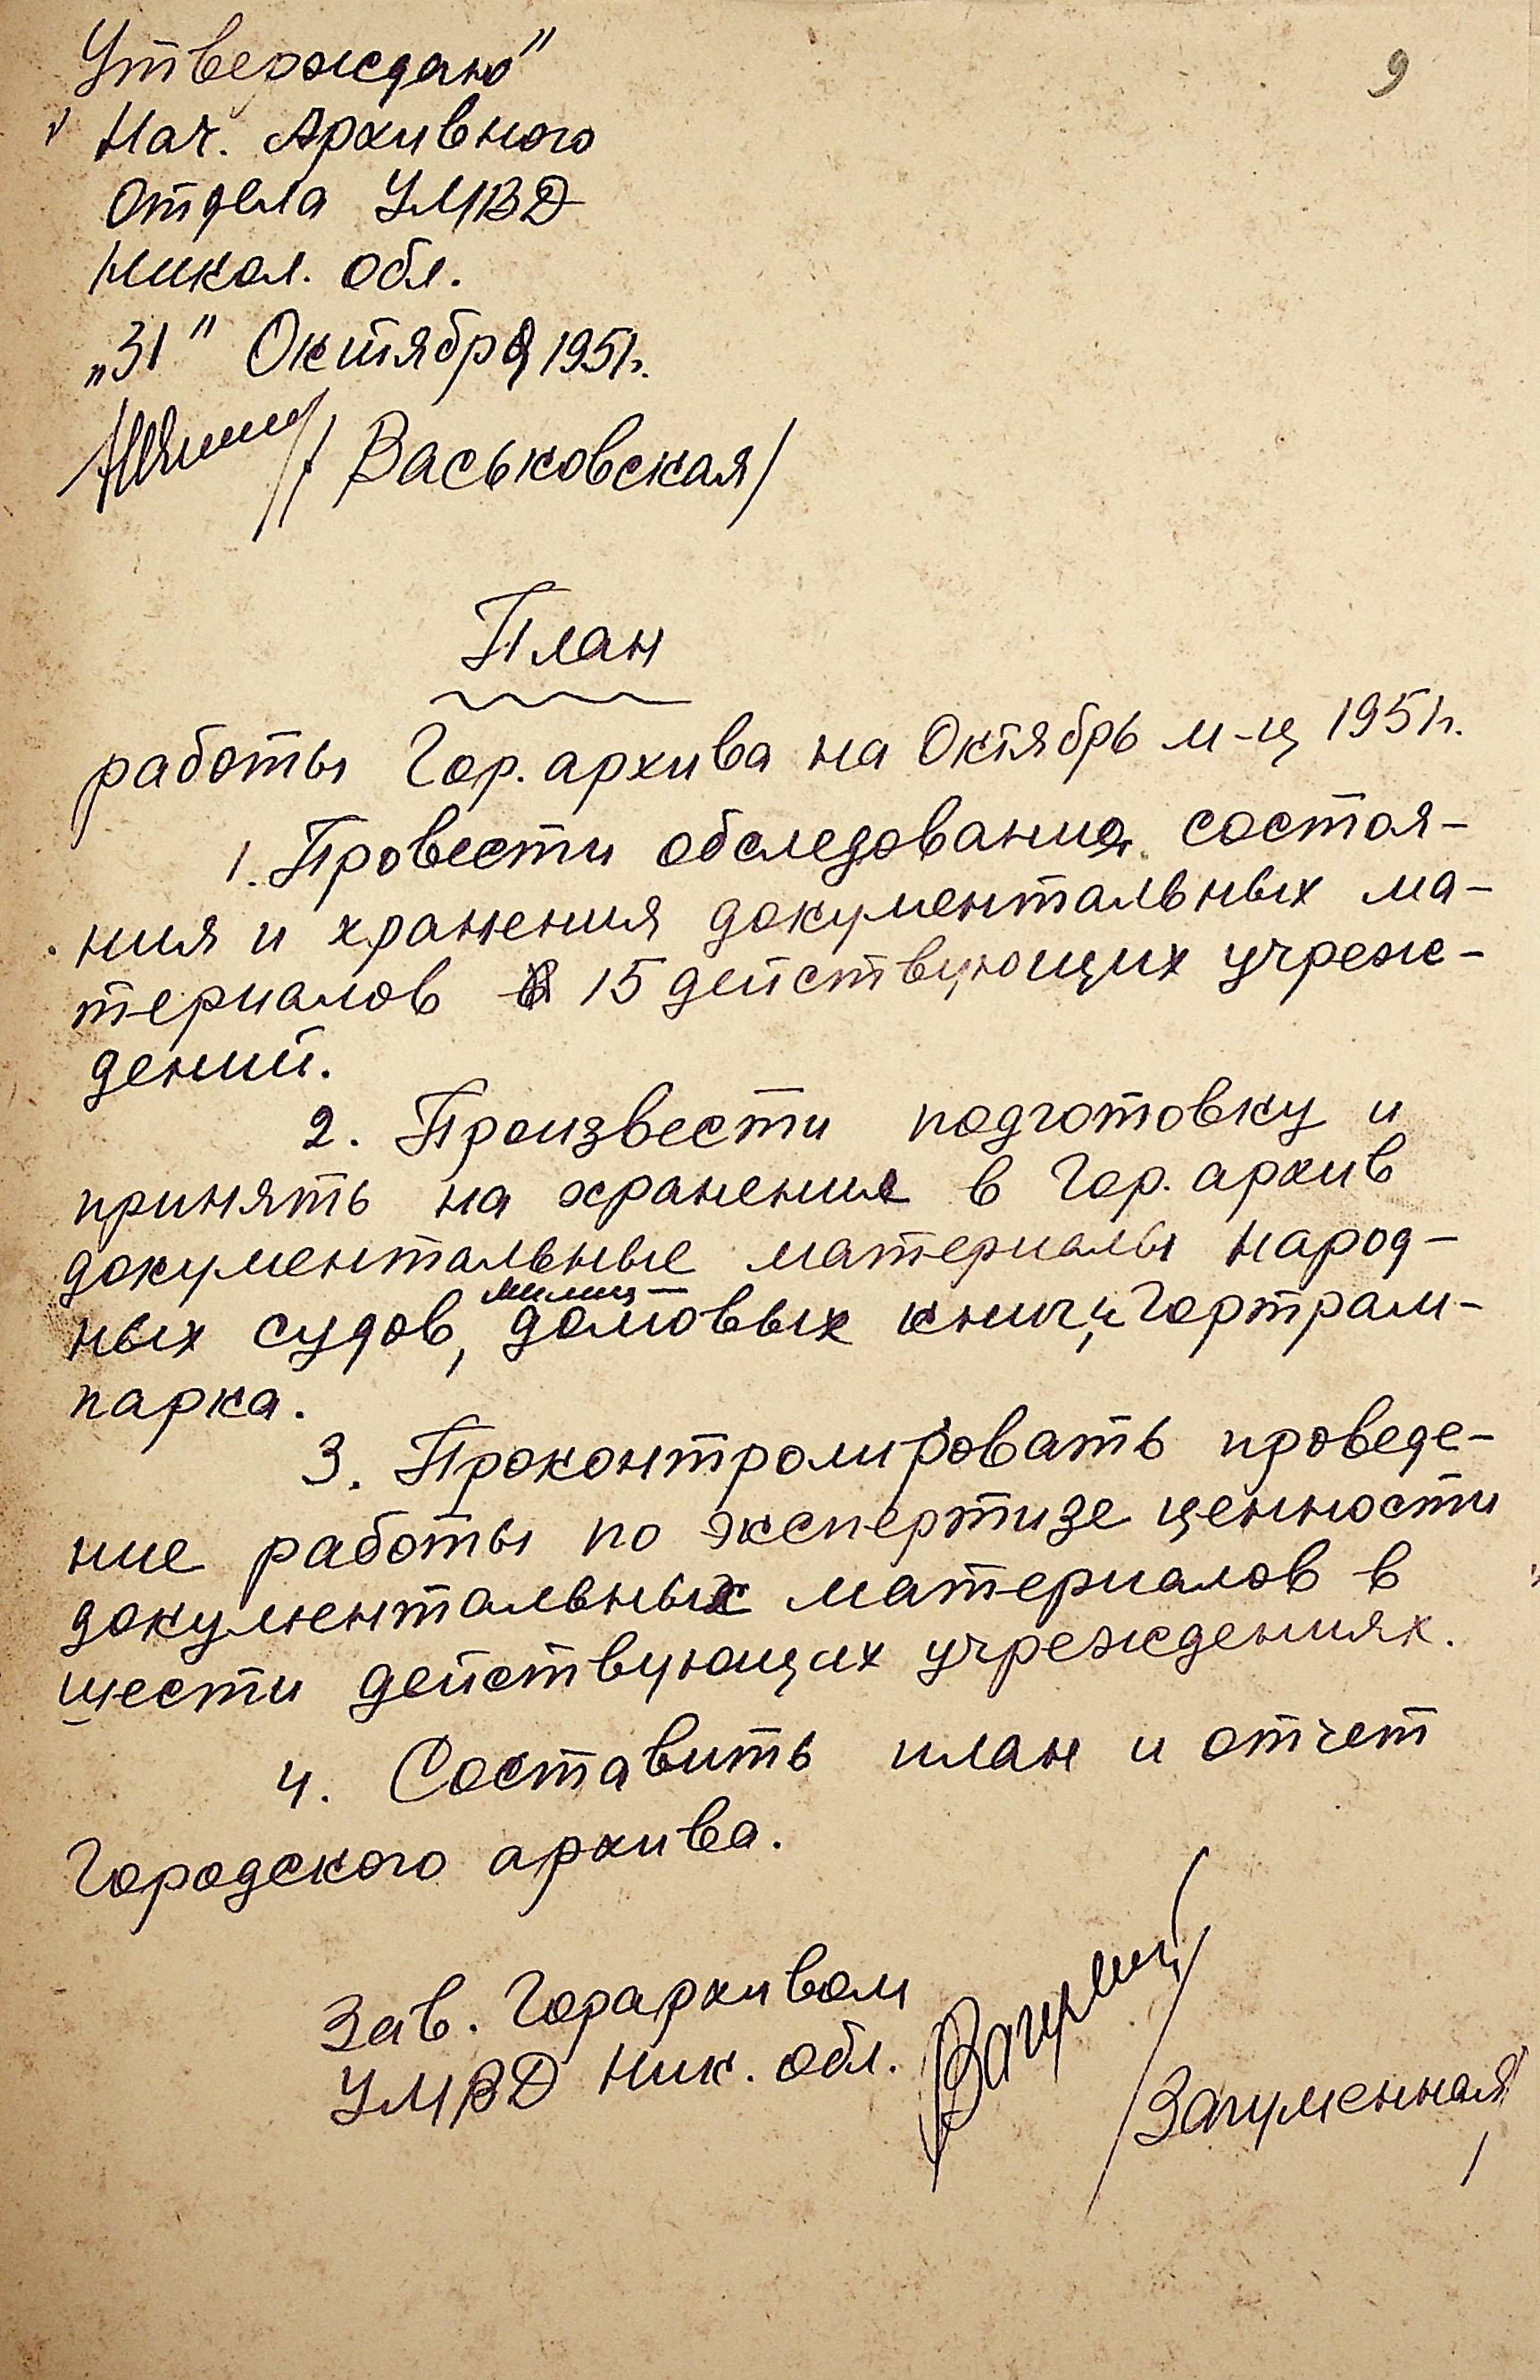 Утверждаю"
9
Нач. Архивного
Отдела УМВД
Никол. обл.
„31" Октября 1951г.
/Васьковская/
План
работы Гор. архива на Октябрь м-ц 1951г.
1. Провести обследование состоя-
ния и хранения документальных ма-
териалов в 15 действующих учреж-
дений.
2. Произвести подготовку и
принять на хранение в Гор. архив
документальные материалы народ-
ных судов, домовых книг и Гортрам-
парка.
3. Проконтролировать проведе-
ние работы по экспертизе ценности
документальных материалов в
шести действующих учреждениях.
4. Составить план и отчет
Городского архива.
Зав. Горархивом
УМВД Ник. обл.
/Загуменная/